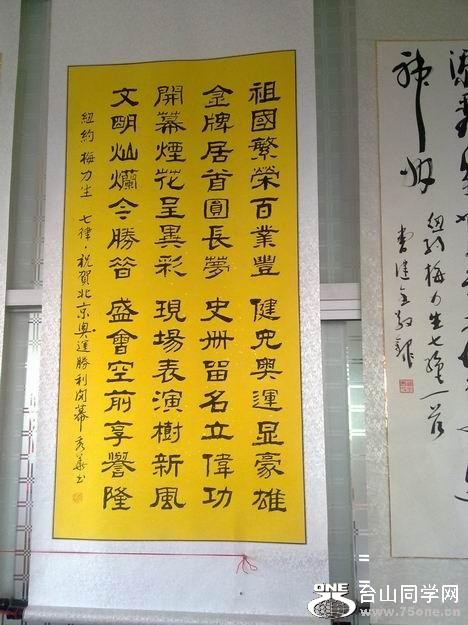 祖國繁榮百業豐 健兒奧運显豪雄
金牌居首圓長夢 史册留名立偉功
開幕煙花呈異彩 現場表演樹新風
文明灿爛今勝昔 盛會空前享譽隆
紐約 梅力生 七律·祝賀北京奧運勝利開幕 秀華书
紐約梅力生七
ONE
台山同学网
www.75one.com